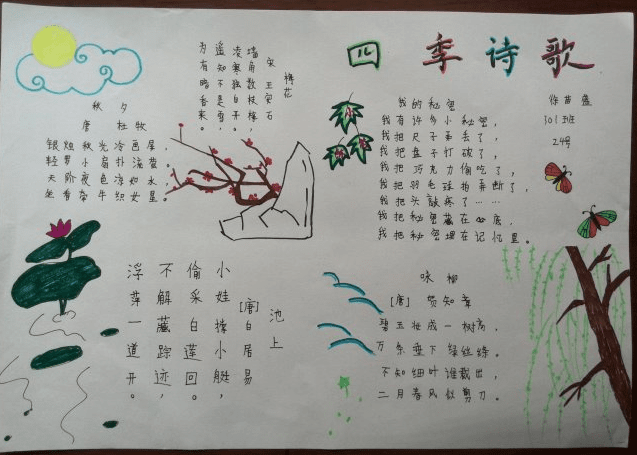 四季诗歌
徐苗盛
301班
24号
秋夕
唐 杜牧
银烛秋光冷画屏，
轻罗小扇扑流萤。
天阶夜色凉如水，
坐看牵牛织女星。
梅花
宋 王安石
墙角数枝梅，
凌寒独自开。
遥知不是雪，
为有暗香来。
我的秘密
我有许多小秘密，
我把尺子弄丢了，
我把盒子打破了，
我把巧克力偷吃了，
我把羽毛球拍弄断了，
我把头敲疼了……
我把秘密藏在心底，
我把秘密埋在记忆里。
池上
[唐]白居易
小娃撑小艇，
偷采白莲回。
不解藏踪迹，
浮萍一道开。
咏柳
[唐] 贺知章
碧玉妆成一树高，
万条垂下绿丝绦。
不知细叶谁裁出，
二月春风似剪刀。